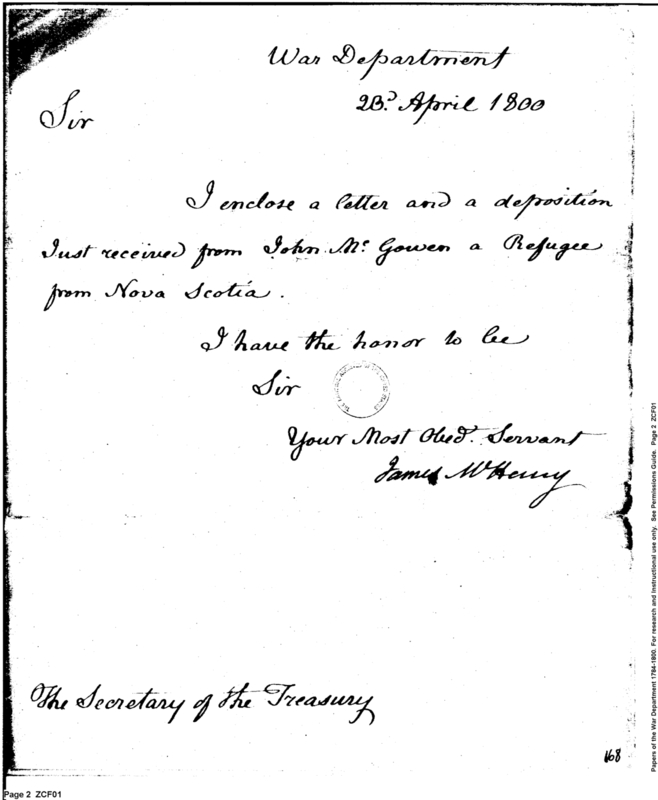 War Department
23d. April 1800
Sir
I enclose a letter and a deposition
Just received from John Mc. Gowen a Refugee
from Nova Scotia.
I have the honor to be
Sir
Your Most Obed. Servant
James McHenry
The Secretary of the Treasury
168
Page 2 ZCF01
Papers of the War Department 1784-1800. For research and Instructional use only. See Permissions Guide. Page 2 ZCF01